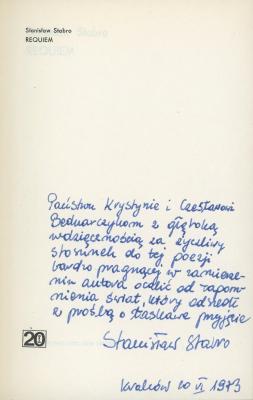 Stanisław Stabro
REQUIEM
Państwu Krystynie i Czesławowi
Bednarczykom z głęboką
wdzięcznością za życzliwy
stosunek do tej poezji
bardzo pragnącej w zamierze-
niu autora ocalić od zapom-
nienia świat, który odszedł
z prośbą o łaskawe przyjęcie
20
Stanisław Stabro
Kraków 20 VI 1973